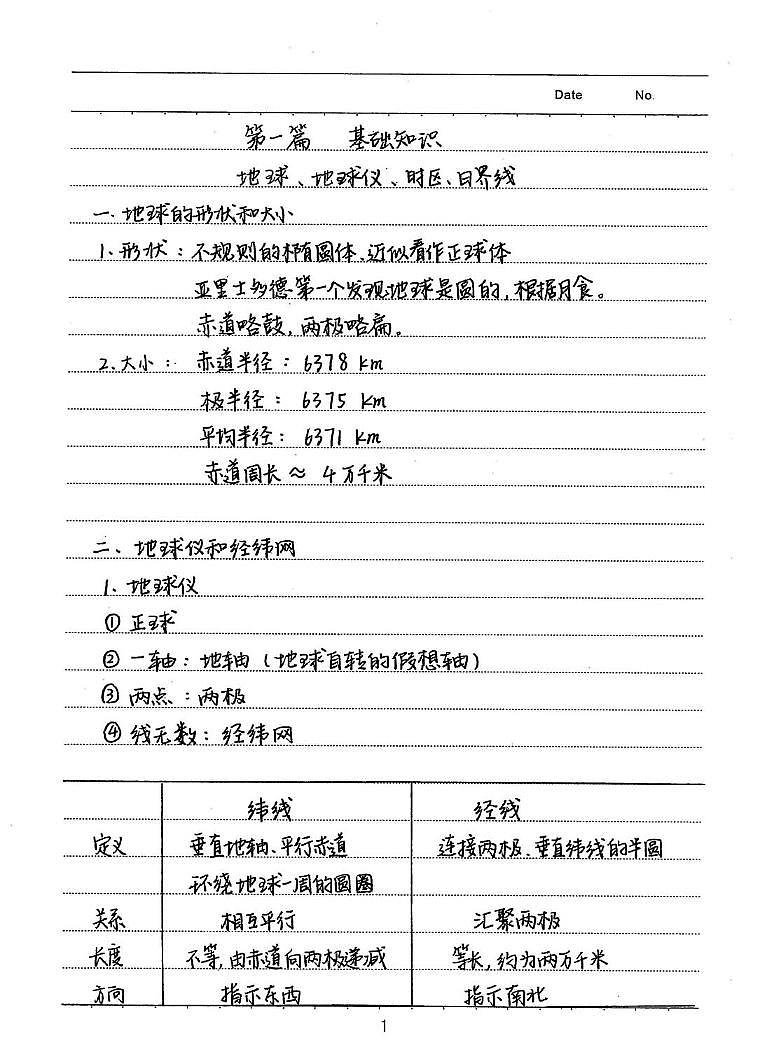 Date No.
第一篇 基础知识
地球、地球仪、时区、日界线
一、地球的形状和大小
1、形状：不规则的椭圆体、近似看作正球体
亚里士多德第一个发现地球是圆的，根据月食。
赤道略鼓，两极略扁。
2、大小：赤道半径：6378 km
极半径：6375 km
平均半径：6371 km
赤道周长≈ 4万千米
二、地球仪和经纬网
1、地球仪
① 正球
② 一轴：地轴（地球自转的假想轴）
③ 两点：两极
④ 线无数：经纬网
纬线 经线
定义 垂直地轴、平行赤道 连接两极、垂直纬线的半圆
环绕地球一周的圆圈
关系 相互平行 汇聚两极
长度 不等，由赤道向两极递减 等长，约为两万千米
方向 指示东西 指示南北
1